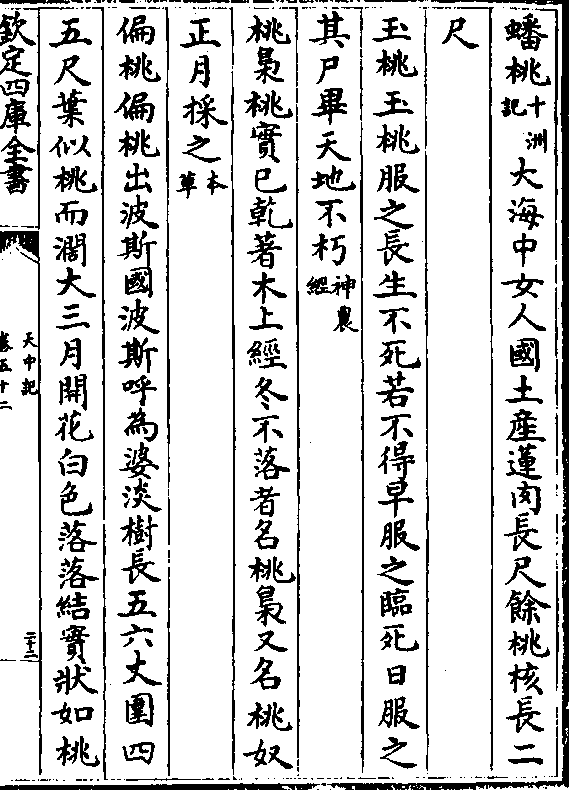 蟠桃十洲記大海中女人國土産蓮肉長尺餘桃核長二
尺
玉桃玉桃服之長生不死若不得早服之臨死日服之
其尸畢天地不朽神農經
桃梟桃實巳乾著木上經冬不落者名桃梟又名桃奴
正月採之本草
偏桃偏桃出波斯國波斯呼為婆淡樹長五六丈圍四
五尺葉似桃而濶大三月開花白色落落結實狀如桃
欽定四庫全書
天中記
卷五十二
二十二